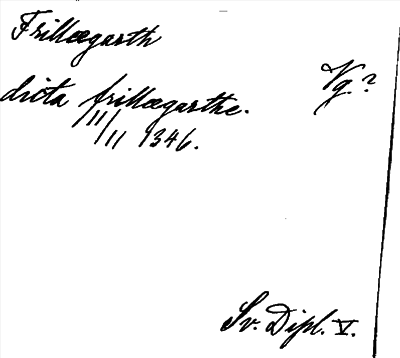 Frillægarth
Vg.?
dicta frillægarthe.
11/11 1346.
Sv. Dipl. V.